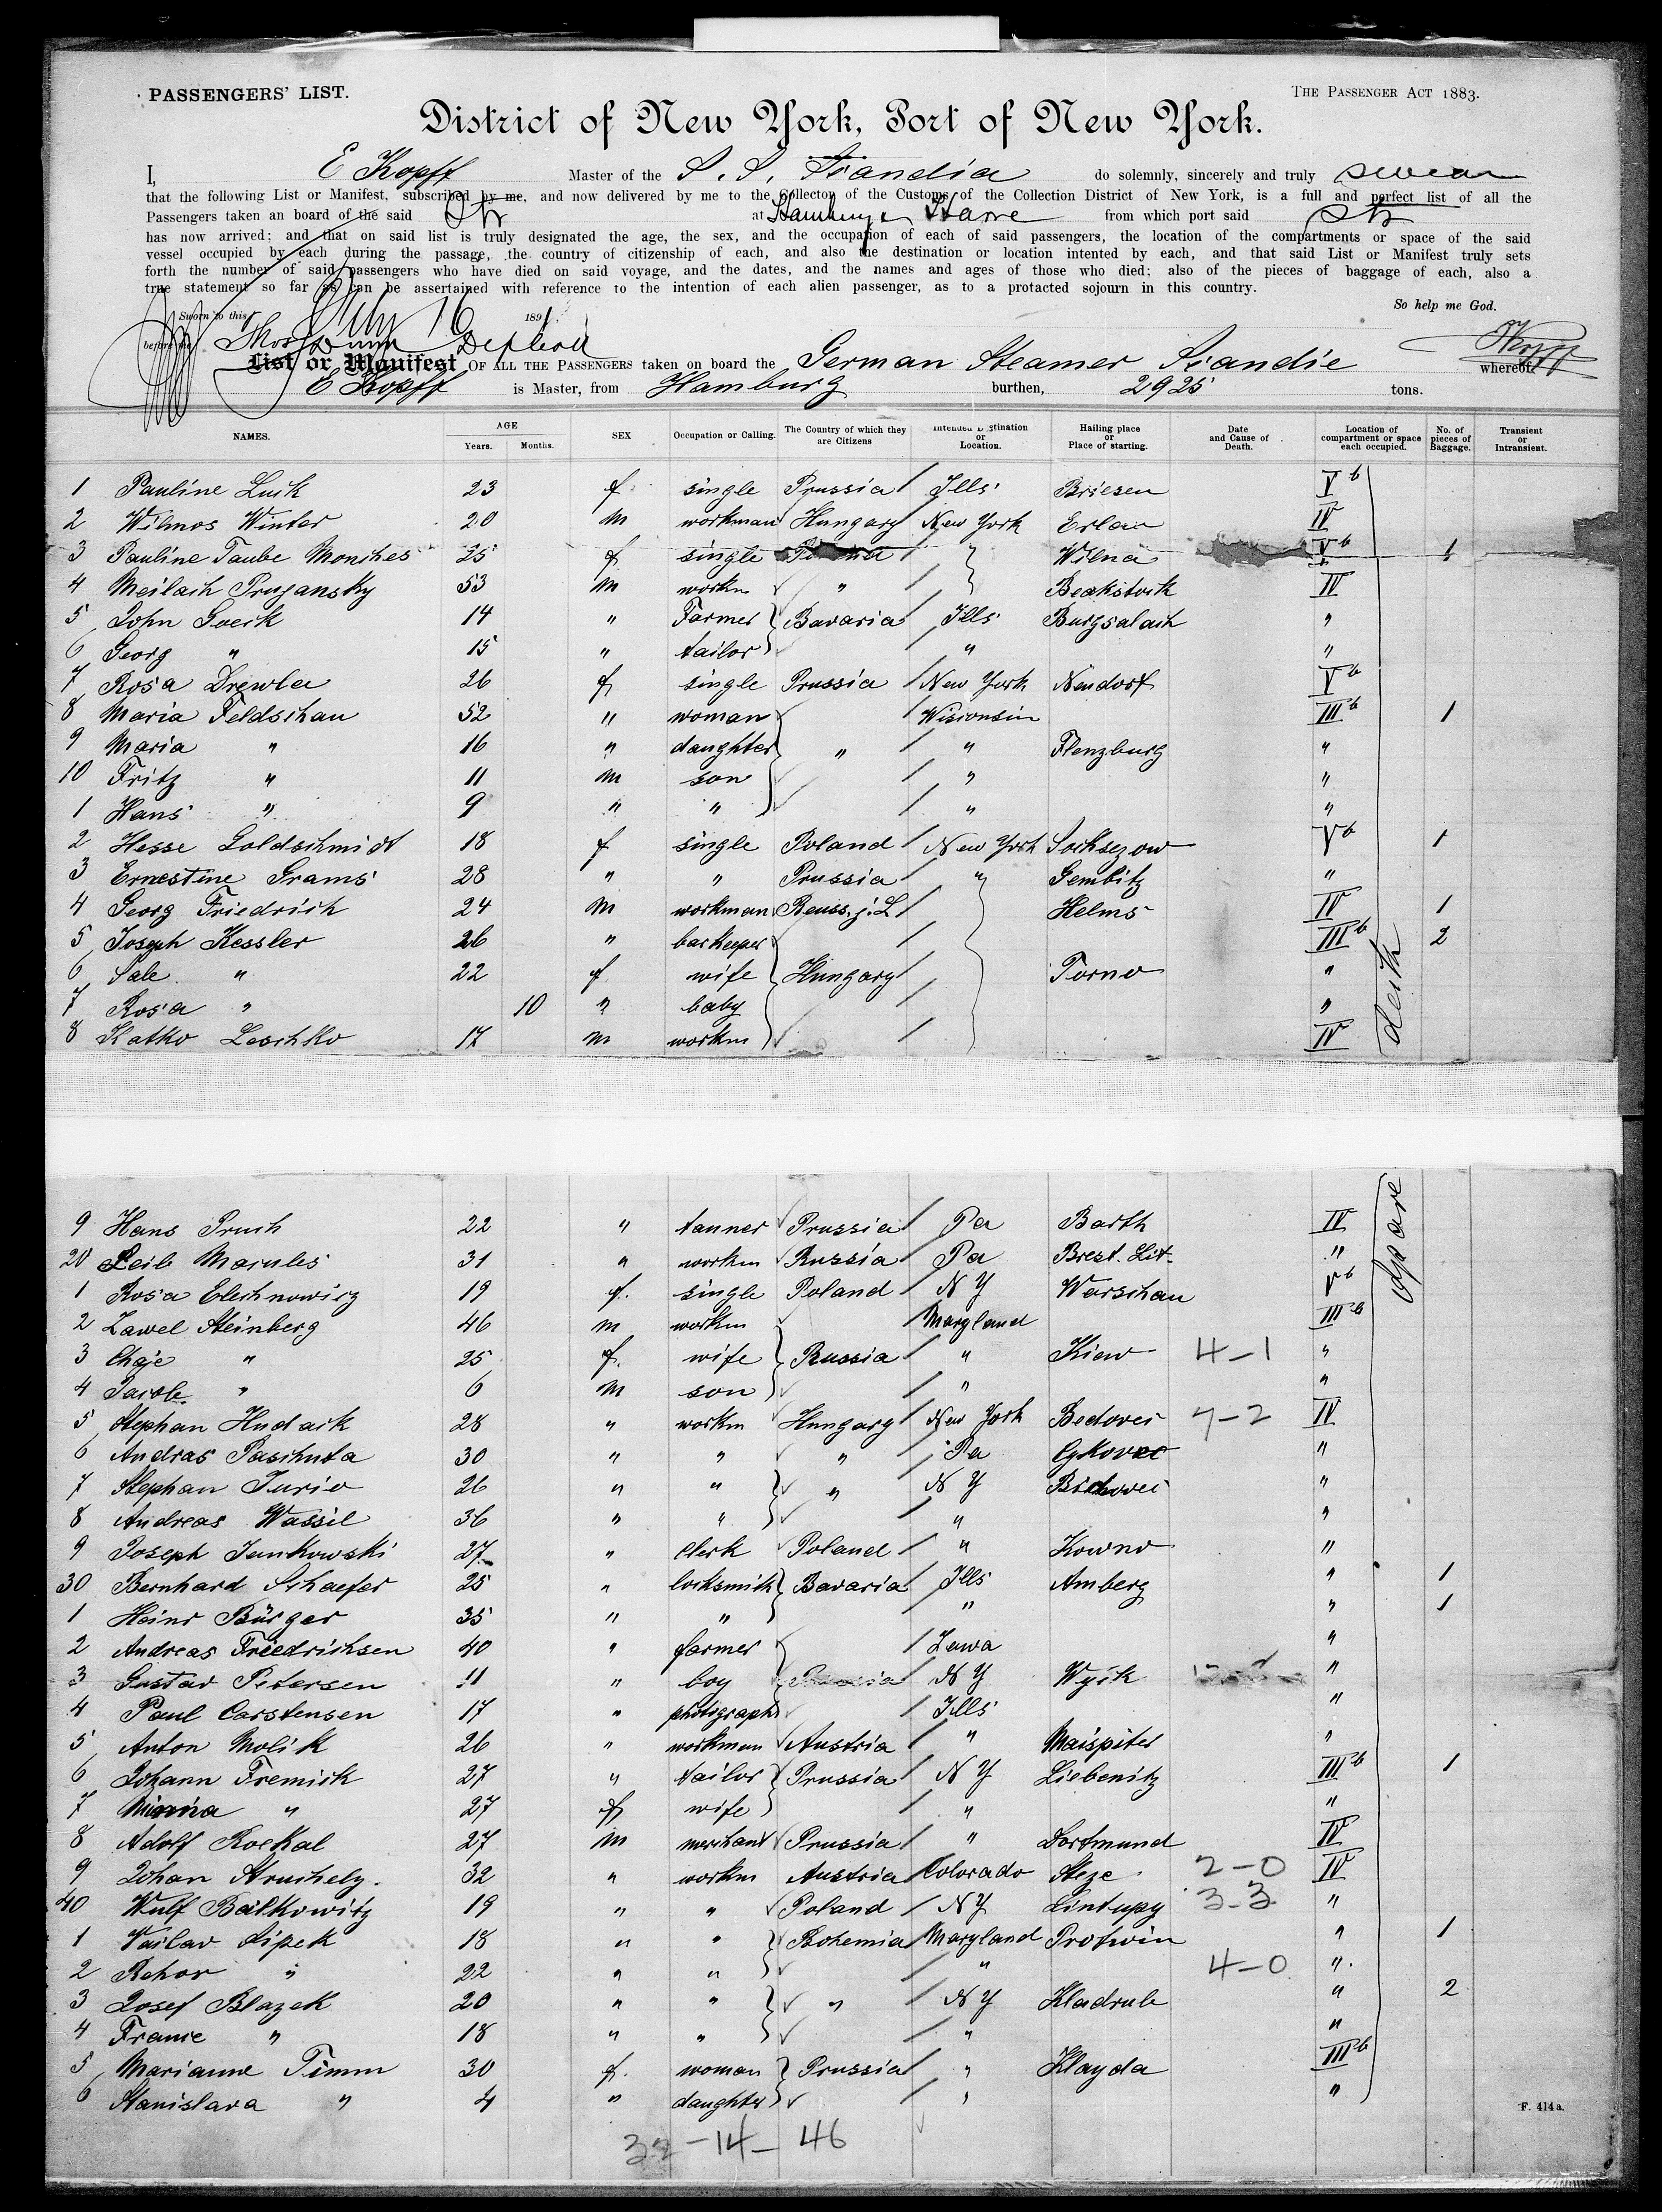 PASSENGERS' LIST.
THE PASSENGER ACT 1883.
District of New York, Port of New York.
I, E Kopff Master of the S. S. Scandia do solemnly, sincerely and truly swear
that the following List or Manifest, subscribed by me, and now delivered by me to the Collector of the Customs of the Collection District of New York, is a full and perfect list of all the
Passengers taken an board of the said at Hamburg Havre from which port said
has now arrived; and that on said list is truly designated the age, the sex, and the occupation of each of said passengers, the location of the compartments or space of the said
vessel occupied by each during the passage, the country of citizenship of each, and also the destination or location intented by each, and that said List or Manifest truly sets
forth the number of said passengers who have died on said voyage, and the dates, and the names and ages of those who died; also of the pieces of baggage of each, also a
true statement so far as can be assertained with reference to the intention of each alien passenger, as to a protacted sojourn in this country.
So help me God.
Sworn to this 16 1891
before me
List or Manifest OF ALL THE PASSENGERS taken on board the German Steamer Scandia whereof
E Kopff is Master, from Hamburg burthen, 2925 tons.
NAMES. AGE Years. Months. SEX Occupation or Calling. The Country of which they are Citizens Intended Destination or Location. Hailing place or Place of starting. Date and Cause of Death. Location of compartment or space each occupied. No. of pieces of Baggage. Transient or Intransient.
1 Pauline Luik 23 f single Prussia Ills Briesen V b
2 Wilmos Winter 20 m workman Hungary New York Erlau IV
3 Pauline Taube Monches 25 f single Wilna V b 1
4 Meilach Prugansky 53 m workm " Beakstock IV
5 John Goeck 14 " Farmer Bavaria Ills Burgsalach "
6 Georg " 15 " tailor " "
7 Rosa Drewla 26 f single Prussia New York Neudorf V b
8 Maria Feldschau 52 " woman Wisconsin III b 1
9 Maria " 16 " daughter " " Flenzburg "
10 Fritz " 11 m son " "
1 Hans " 9 " " " "
2 Hesse Goldschmidt 18 f single Poland New York Sochsezow V b 1
3 Ernestine Grams 28 " " Prussia " Gembitz "
4 Georg Friedrich 24 m workman Reuss. j. L Helms IV 1
5 Joseph Kessler 26 " barkeeper III b 2
6 Sale " 22 f wife Hungary Torno "
7 Rosa " 10 " baby "
8 Katko Leschko 17 m workm IV
9 Hans Pruch 22 " tanner Prussia Pa Barth IV
20 Leib Marules 31 " workm Russia Pa Brest. Lit. "
1 Rosa Elechnowicz 19 f. single Poland N Y Warschau V b
2 Zawel Steinberg 46 m workm Maryland III b
3 Chaje " 25 f. wife Russia " Kiew 4-1 "
4 Jacob " 6 m son " "
5 Stephan Hudack 28 " workm Hungary New York Bedovci 7-2 IV
6 Andras Paschuta 30 " " " Pa "
7 Stephan Jurio 26 " " " N Y "
8 Andreas Wassil 36 " " " "
9 Joseph Jankowski 27 " clerk Poland " Kowno "
30 Bernhard Schaefer 25 " locksmith Bavaria Ills Amberg " 1
1 Heinr Bürger 35 " " " " 1
2 Andreas Friedrichsen 40 " farmer Iowa "
3 Gustav Petersen 11 " boy N Y Wyck "
4 Paul Carstensen 17 " photograph Ills "
5 Anton Molik 26 " workman Austria " Maispiter "
6 Johann Fremick 27 " tailor Prussia N Y Liebenitz III b 1
7 Minna " 27 f wife " "
8 Adolf Roekal 27 m merchant Prussia " Dortmund IV
9 Johan Struchely. 32 " workm Austria Colorado Steze 2-0 IV
40 Wulf Beilkowitz 19 " " Poland N Y Lintupy 3-3 "
1 Vaclav Sipek 18 " " Bohemia Maryland Protwin " 1
2 Rehor " 22 " " " 4-0 "
3 Josef Blazek 20 " " " N Y Kladrub " 2
4 Franc " 18 " " " "
5 Marianne Timm 30 f. woman Prussia " Klayda III b
6 Stanislava " 4 " daughter " "
F. 414 a.
32-14-46